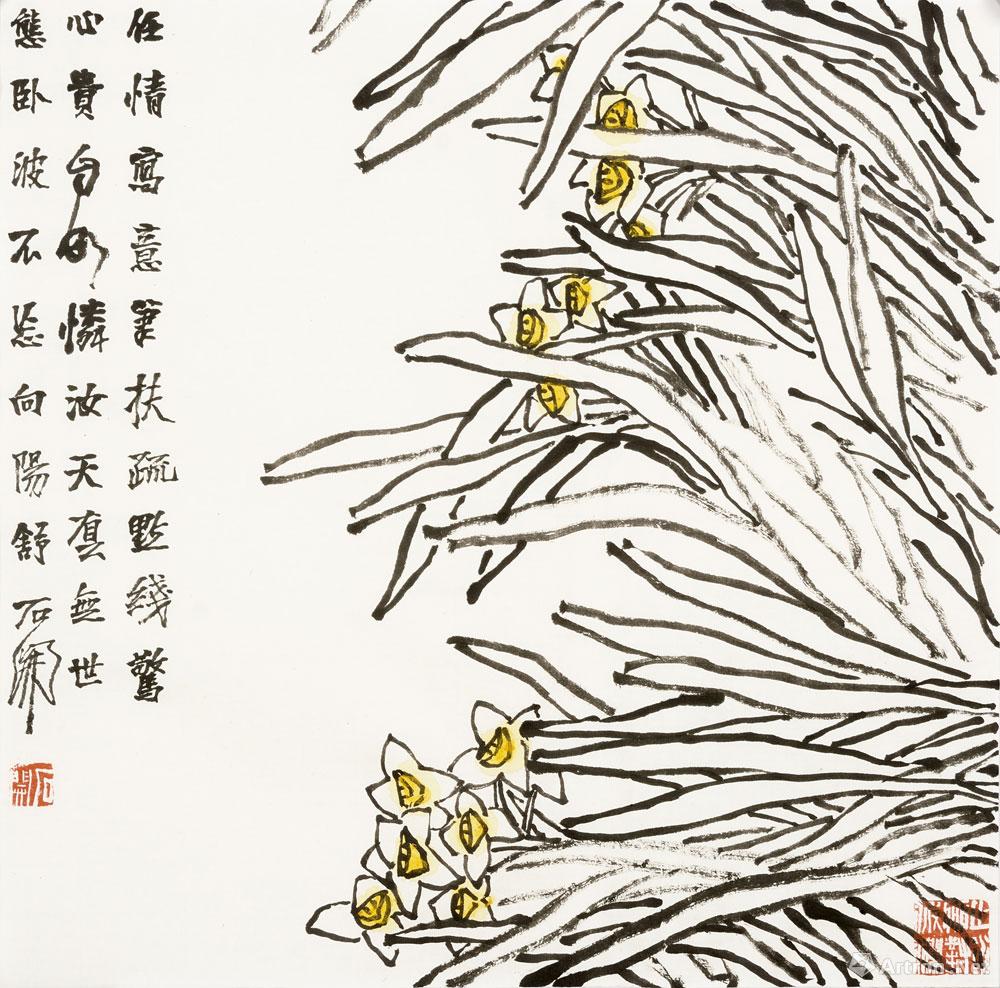 任情寫意筆扶疏點綫驚
心貴自如憐汝天真無世
態卧波不向陽舒 石開
石開
Artron.Net